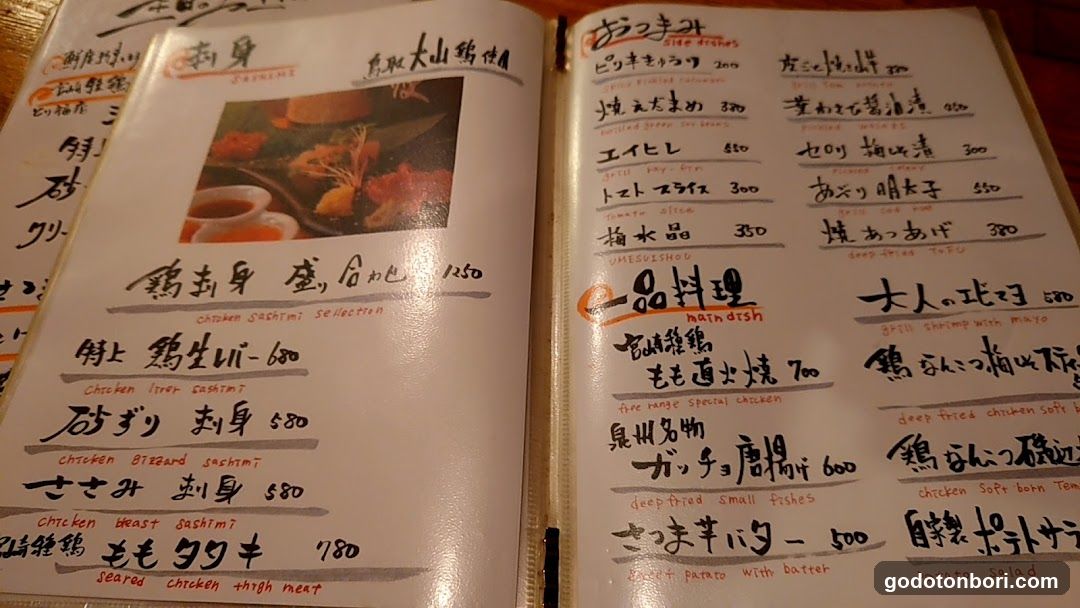 刺身
SASHIMI
鳥取 大山鶏使用
鶏刺身 盛り合わせ 1250
chicken sashimi selection
特上 鶏生レバー 680
chicken liver sashimi
砂ずり 刺身 580
chicken gizzard sashimi
ささみ 刺身 580
chicken breast sashimi
宮崎種鶏 ももタタキ 780
seared chicken thigh meat
おつまみ
side dishes
ピリ辛きゅうり 200
焼えだまめ 380
grilled green soy beans
エイヒレ 550
grill ray-fin
トマトスライス 300
Tomato slice
梅水晶 350
UMESUISHOU
葉わさび醤油漬
pickled wasabi
セロリ 梅しそ漬 300
あぶり明太子 550
grill cod roe
焼あつあげ 380
deep fried ToFU
一品料理
main dish
宮崎種鶏
もも直火焼 700
free range special chicken
泉州名物
ガッチョ唐揚げ 600
deep fried small fishes
さつま芋バター 500
sweet potato with batter
大人のエビマヨ 580
grill shrimp with mayo
鶏なんこつ梅しそスティ
deep fried chicken soft b
鶏なんこつ磯辺
chicken soft born Tem
自家製 ポテトサラ
salad
鶏
特上
砂
クリー
godotonbori.com